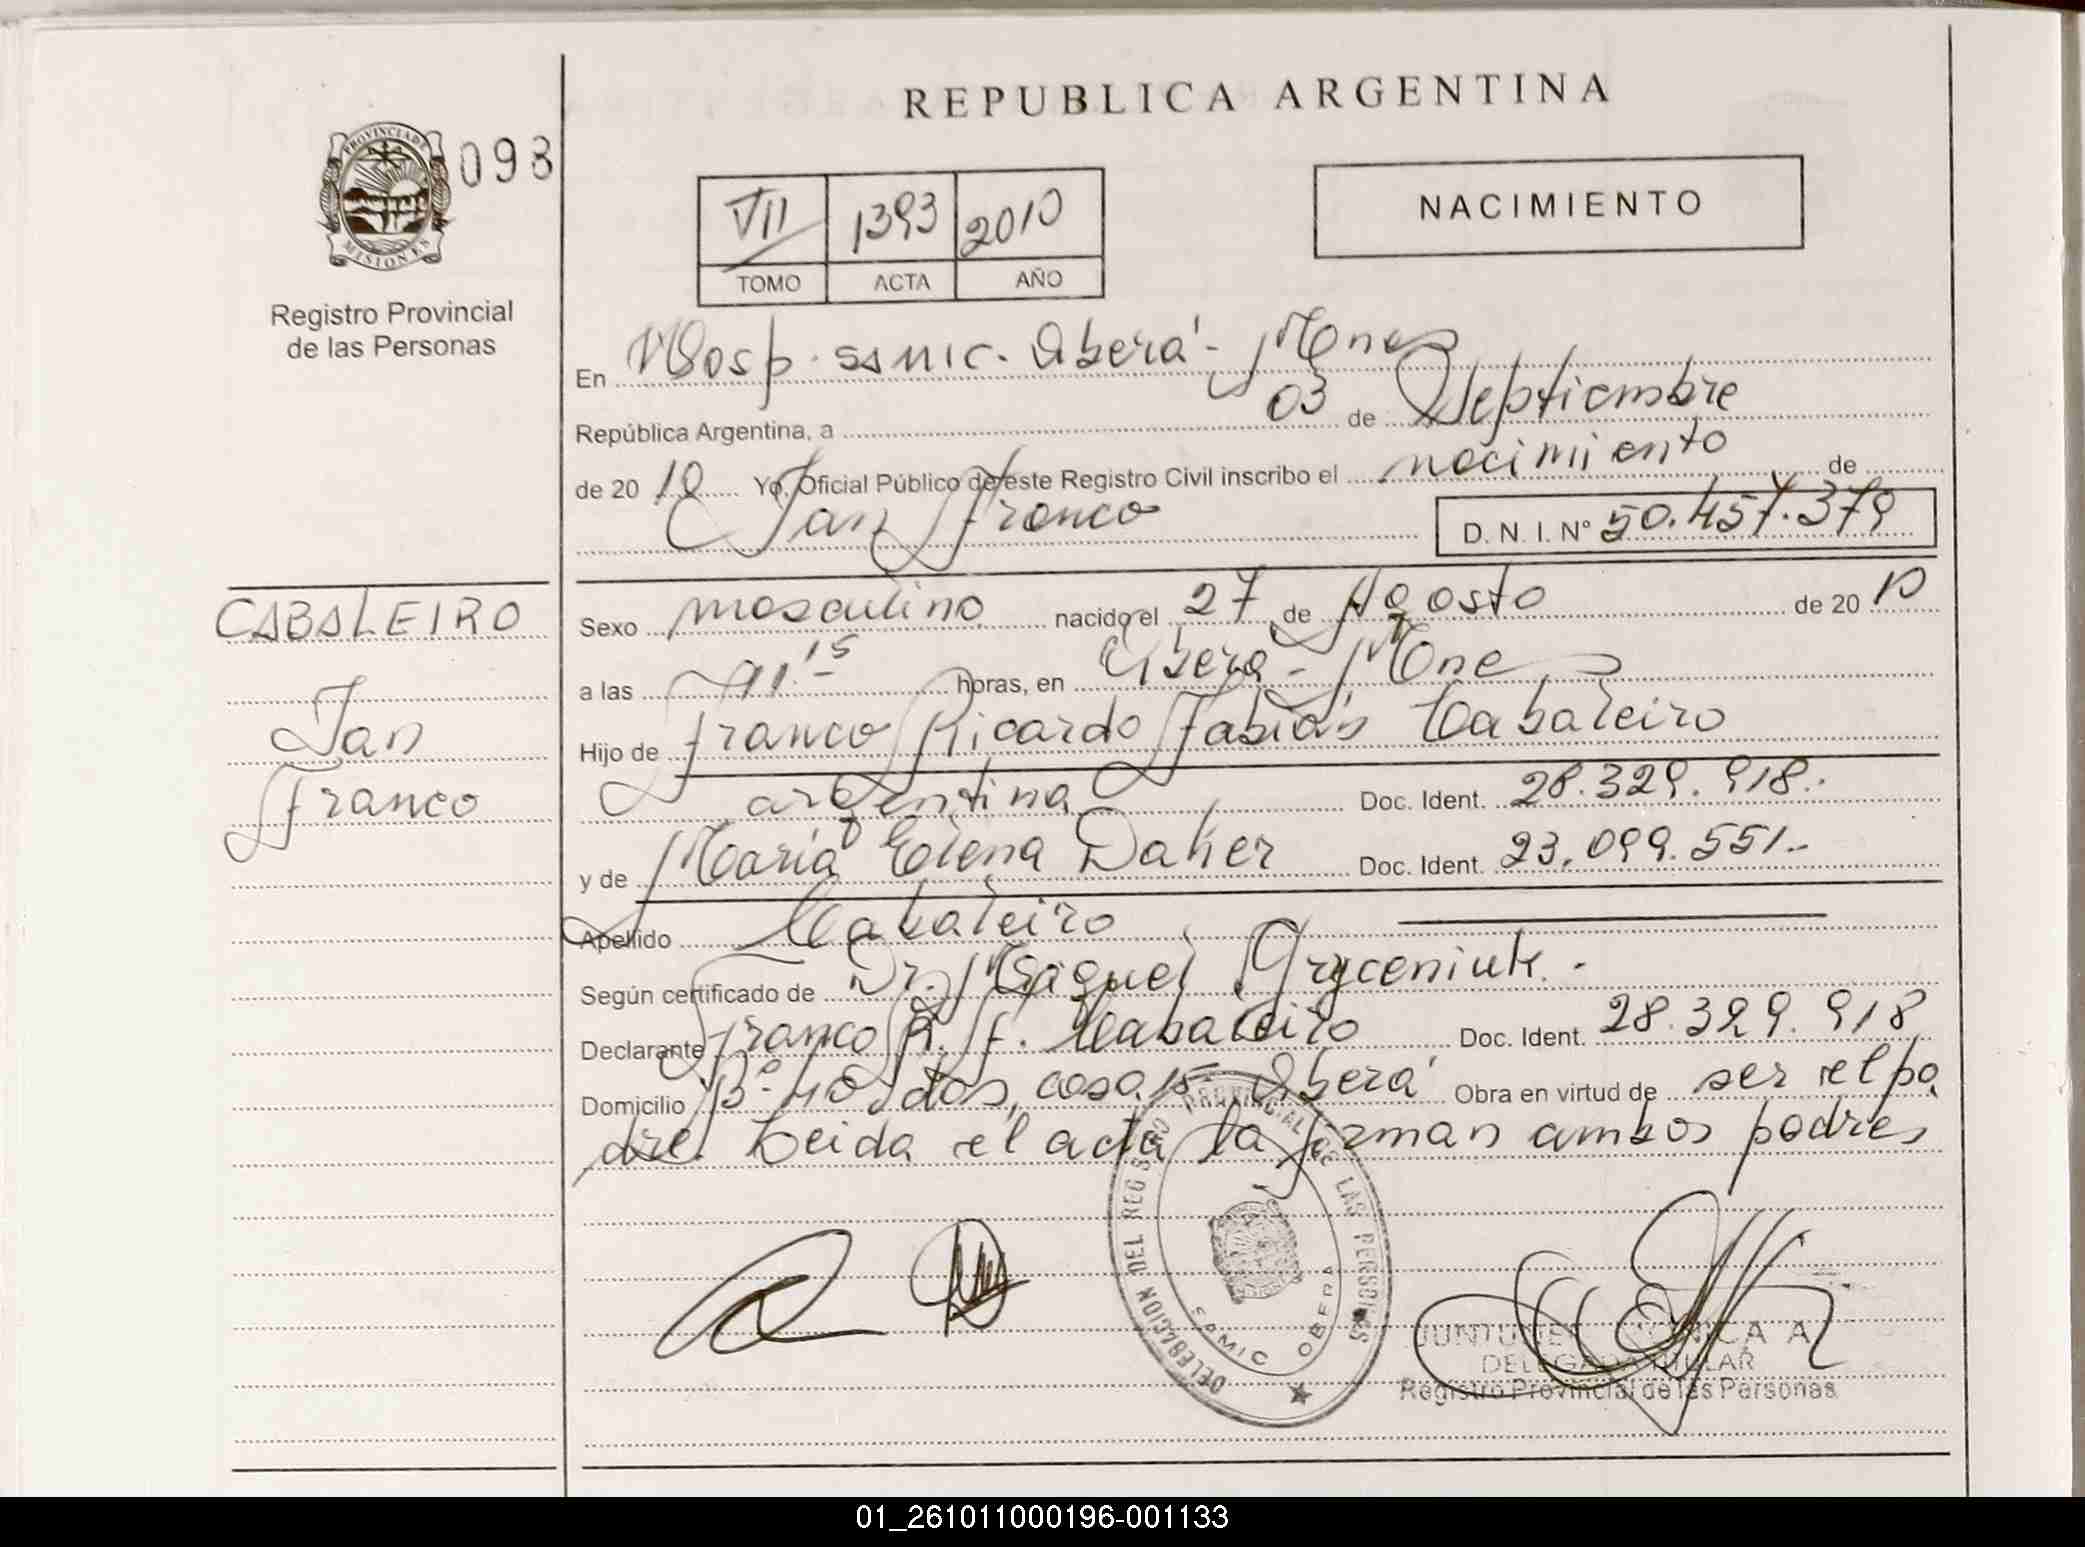 REPUBLICA ARGENTINA
PROVINCIA DE
MISIONES
098
Registro Provincial
de las Personas
VII 1393 2010
TOMO ACTA AÑO
NACIMIENTO
En Hosp. SAMIC. Oberá - Mnes
República Argentina, a 03 de Septiembre
de 2010 Yo, Oficial Público de este Registro Civil inscribo el nacimiento de
Ian Franco D. N. I. Nº 50.457.379
CABALEIRO
Ian
Franco
Sexo masculino nacido el 27 de Agosto de 2010
a las 11:15 horas, en Oberá - Mnes
Hijo de Franco Ricardo Fabián Cabaleiro
argentina Doc. Ident. 28.329.918.
y de María Elena Daher Doc. Ident. 23.099.551.-
Apellido Cabaleiro
Según certificado de Dr. Gryceniuk.-
Declarante Franco R. F. Cabaleiro Doc. Ident. 28.329.918
Domicilio Bº 40 dtos, casa 15 Oberá Obra en virtud de ser el pa
dre. Leida el acta la firman ambos padres
DELEGACION DEL REGISTRO PROVINCIAL DE LAS PERSONAS
SAMIC OBERA
A
DELEGADA TITULAR
Registro Provincial de las Personas
01_261011000196-001133